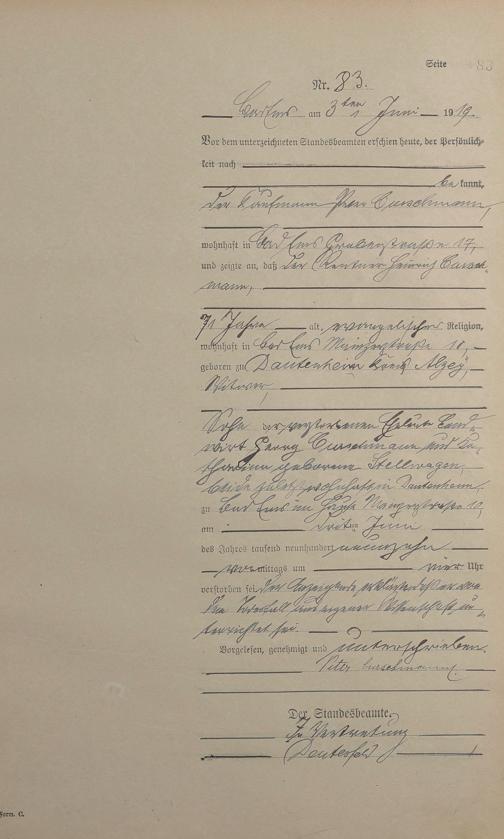 Seite 83
Nr. 83.
Bad Ems am 3ten Juni 1919.
Vor dem unterzeichneten Standesbeamten erschien heute, der Persönlich-
keit nach
be kannt,
der Kaufmann Peter Curschmann,
wohnhaft in Bad Ems Grabenstraße 17,
und zeigte an, daß der Rentner Heinrich Cursch-
mann,
71 Jahre alt, evangelischer Religion,
wohnhaft in Bad Ems Mainzerstraße 10,
geboren zu Dautenheim Kreis Alzey,
Witwer,
Sohn der verstorbenen Eheleute Land-
wirt Georg Curschmann und Ka-
tharina geborene Stellwagen,
beide zuletzt wohnhaft in Dautenheim,
zu Bad Ems im Hause Mainzerstraße 10,
am dritten Juni
des Jahres tausend neunhundert neunzehn
vor mittags um vier Uhr
verstorben sei. Der Anzeigende erklärte daß er von
dem Sterbfall aus eigener Wissenschaft un-
terrichtet sei.
Vorgelesen, genehmigt und unterschrieben.
Peter Curschmann.
Der Standesbeamte.
In Vertretung
Form. C.